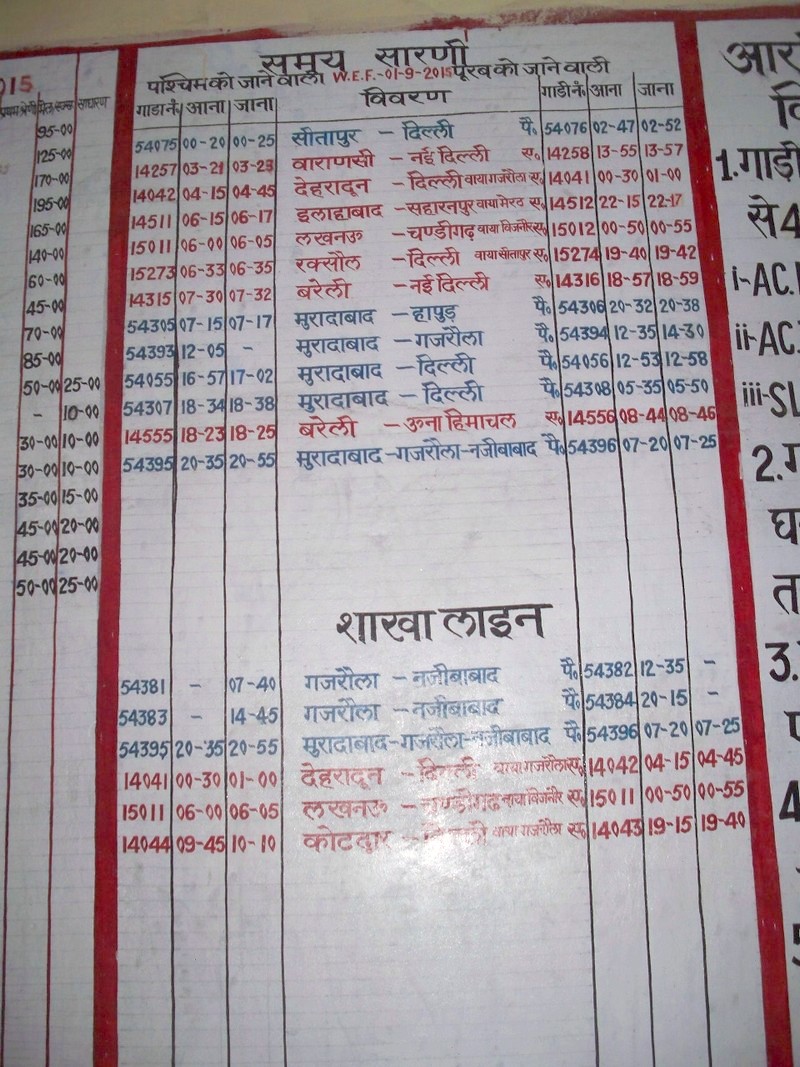 015
प्रथम श्रेणी
साधारण
95-00
125-00
170-00
195-00
165-00
140-00
60-00
45-00
70-00
85-00
50-00 25-00
- 10-00
30-00 10-00
30-00 10-00
35-00 15-00
45-00 20-00
45-00 20-00
50-00 25-00
समय सारणी
पश्चिम को जाने वाली W.E.F.-01-9-2015 पूरब को जाने वाली
गाडी नं. आना जाना विवरण गाडी नं. आना जाना
54075 00-20 00-25 सीतापुर - दिल्ली पै० 54076 02-47 02-52
14257 03-21 03-23 वाराणसी - नई दिल्ली ए० 14258 13-55 13-57
14042 04-15 04-45 देहरादून - दिल्ली वाया गजरौला ए० 14041 00-30 01-00
14511 06-15 06-17 इलाहाबाद - सहारनपुर वाया मेरठ ए० 14512 22-15 22-17
15011 06-00 06-05 लखनऊ - चण्डीगढ़ वाया बिजनौर ए० 15012 00-50 00-55
15273 06-33 06-35 रक्सौल - दिल्ली वाया सीतापुर ए० 15274 19-40 19-42
14315 07-30 07-32 बरेली - नई दिल्ली ए० 14316 18-57 18-59
54305 07-15 07-17 मुरादाबाद - हापुड़ पै० 54306 20-32 20-38
54393 12-05 - मुरादाबाद - गजरौला पै० 54394 12-35 14-30
54055 16-57 17-02 मुरादाबाद - दिल्ली पै० 54056 12-53 12-58
54307 18-34 18-38 मुरादाबाद - दिल्ली पै० 54308 05-35 05-50
14555 18-23 18-25 बरेली - ऊना हिमाचल ए० 14556 08-44 08-46
54395 20-35 20-55 मुरादाबाद-गजरौला-नजीबाबाद पै० 54396 07-20 07-25
शाखा लाइन
54381 - 07-40 गजरौला - नजीबाबाद पै० 54382 12-35 -
54383 - 14-45 गजरौला - नजीबाबाद पै० 54384 20-15 -
54395 20-35 20-55 मुरादाबाद-गजरौला-नजीबाबाद पै० 54396 07-20 07-25
14041 00-30 01-00 देहरादून - दिल्ली वाया गजरौला ए० 14042 04-15 04-45
15011 06-00 06-05 लखनऊ - चण्डीगढ़ वाया बिजनौर ए० 15011 00-50 00-55
14044 09-45 10-10 कोटद्वार - दिल्ली वाया गजरौला ए० 14043 19-15 19-40
1. गाड़ी
से 4
i-AC.
ii-AC.
iii-SL
2.
3.
4
5